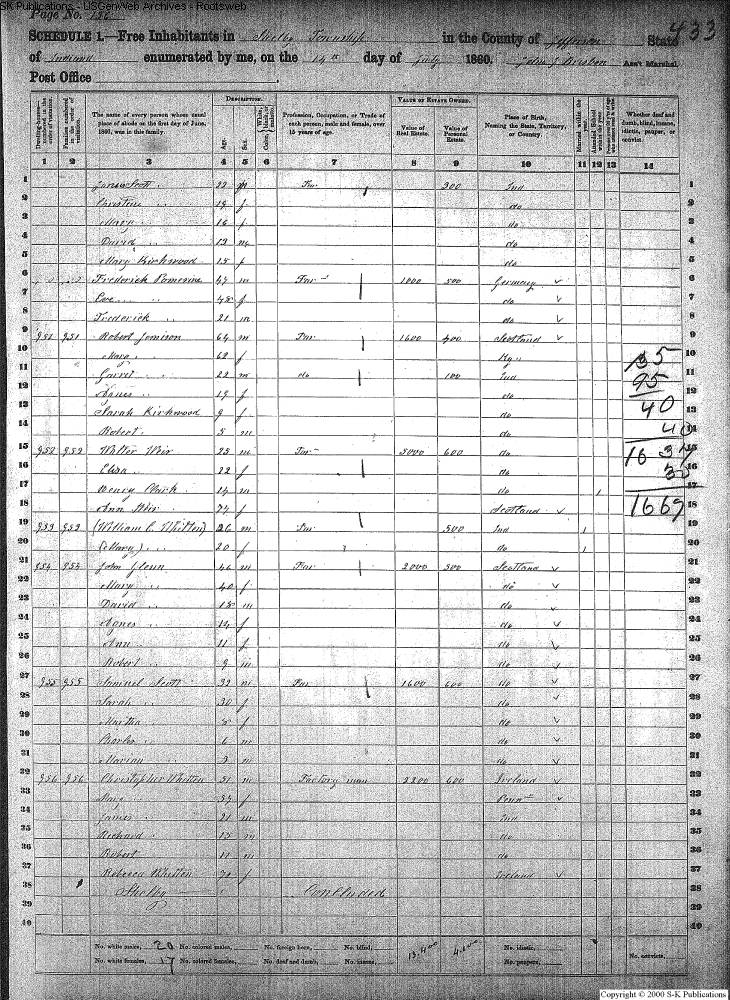 SK Publications - USGenWeb Archives - Rootsweb
Page No. 433
SCHEDULE 1.—Free Inhabitants in Shelby Township in the County of Jefferson State
of Indiana enumerated by me, on the 14th day of July 1860. Ass't Marshal.
Post Office
Dwelling-houses—numbered in the order of visitation.
Families numbered in the order of visitation.
The name of every person whose usual place of abode on the first day of June, 1860, was in this family.
DESCRIPTION.
Age.
Sex.
Color, White, black, or mulatto.
Profession, Occupation, or Trade of each person, male and female, over 15 years of age.
VALUE OF ESTATE OWNED.
Value of Real Estate.
Value of Personal Estate.
Place of Birth, Naming the State, Territory, or Country.
Married within the year.
Attended School within the year.
Whether deaf and dumb, blind, insane, idiotic, pauper, or convict.
1 2 3 4 5 6 7 8 9 10 11 12 13 14
1 Scott 22 m Far 300 Ind 1
2 Christine 19 f do 2
3 Mary 16 f do 3
4 David 13 m do 4
5 Mary Kirkwood f do 5
6 Frederick 47 m Far 1000 500 Germany 6
7 48 f do 7
8 Frederick 21 m do 8
9 951 951 Robert Jamison 64 m Far 1600 400 Scotland 9
10 Mary 62 f Ky 10
11 Garret 22 m do 100 Ind 11
12 Agnes 19 f do 12
13 Sarah Kirkwood 9 f do 13
14 Robert 5 m do 14
15 952 952 Walter Weir m Far 3000 600 do 15
16 Eliza 22 f do 16
17 Henry Clark 14 m do 17
18 Ann Weir 77 f Scotland 18
35
95
40
40
1637
32
1669
19 953 953 (William C. Whitten) 26 m Far 500 Ind 19
20 (Mary) 20 f do 20
21 954 954 John Glenn 46 m Far 2000 300 Scotland 21
22 Mary 40 f do 22
23 David m do 23
24 Agnes 14 f do 24
25 Ann 11 f do 25
26 Robert 9 m do 26
27 955 955 Samuel Scott 32 m Far 1600 600 do 27
28 Sarah 30 f do 28
29 Martha 8 f do 29
30 Charles 6 m do 30
31 Marian 3 do 31
32 956 956 Christopher Whitten 51 m Factory man 2200 600 Ireland 32
33 Mary f Penn 33
34 James 21 m Ind 34
35 Richard m do 35
36 Robert 11 m do 36
37 Rebecca Whitten f Ireland 37
38 Shelby Concluded 38
39 39
40 40
No. white males, 20 No. colored males, No. foreign born, No. blind, No. idiotic,
No. white females, 17 No. colored females, No. deaf and dumb, No. insane, No. paupers, No. convicts,
Copyright © 2000 S-K Publications